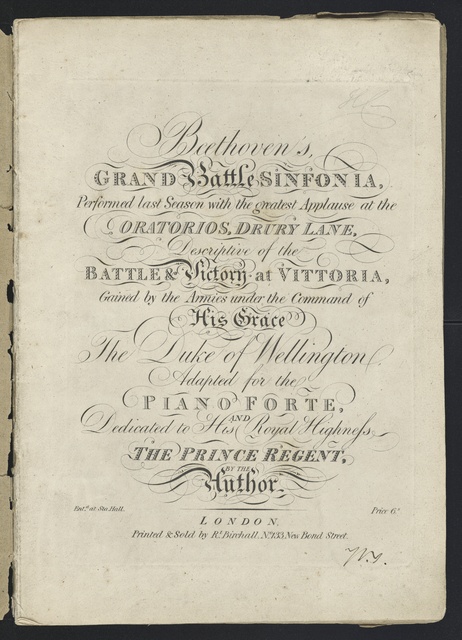 Beethoven's,
GRAND Battle SINFONIA,
Performed last Season with the greatest Applause at the
ORATORIOS, DRURY LANE,
Descriptive of the
BATTLE & Victory at VITTORIA,
Gained by the Armies under the Command of
His Grace
The Duke of Wellington.
Adapted for the
PIANO FORTE,
AND
Dedicated to His Royal Highneſs,
THE PRINCE REGENT,
BY THE
Author.
Ent.d at Sta. Hall. Price 6s
LONDON,
Printed & Sold by R.t Birchall, No. 133, New Bond Street.